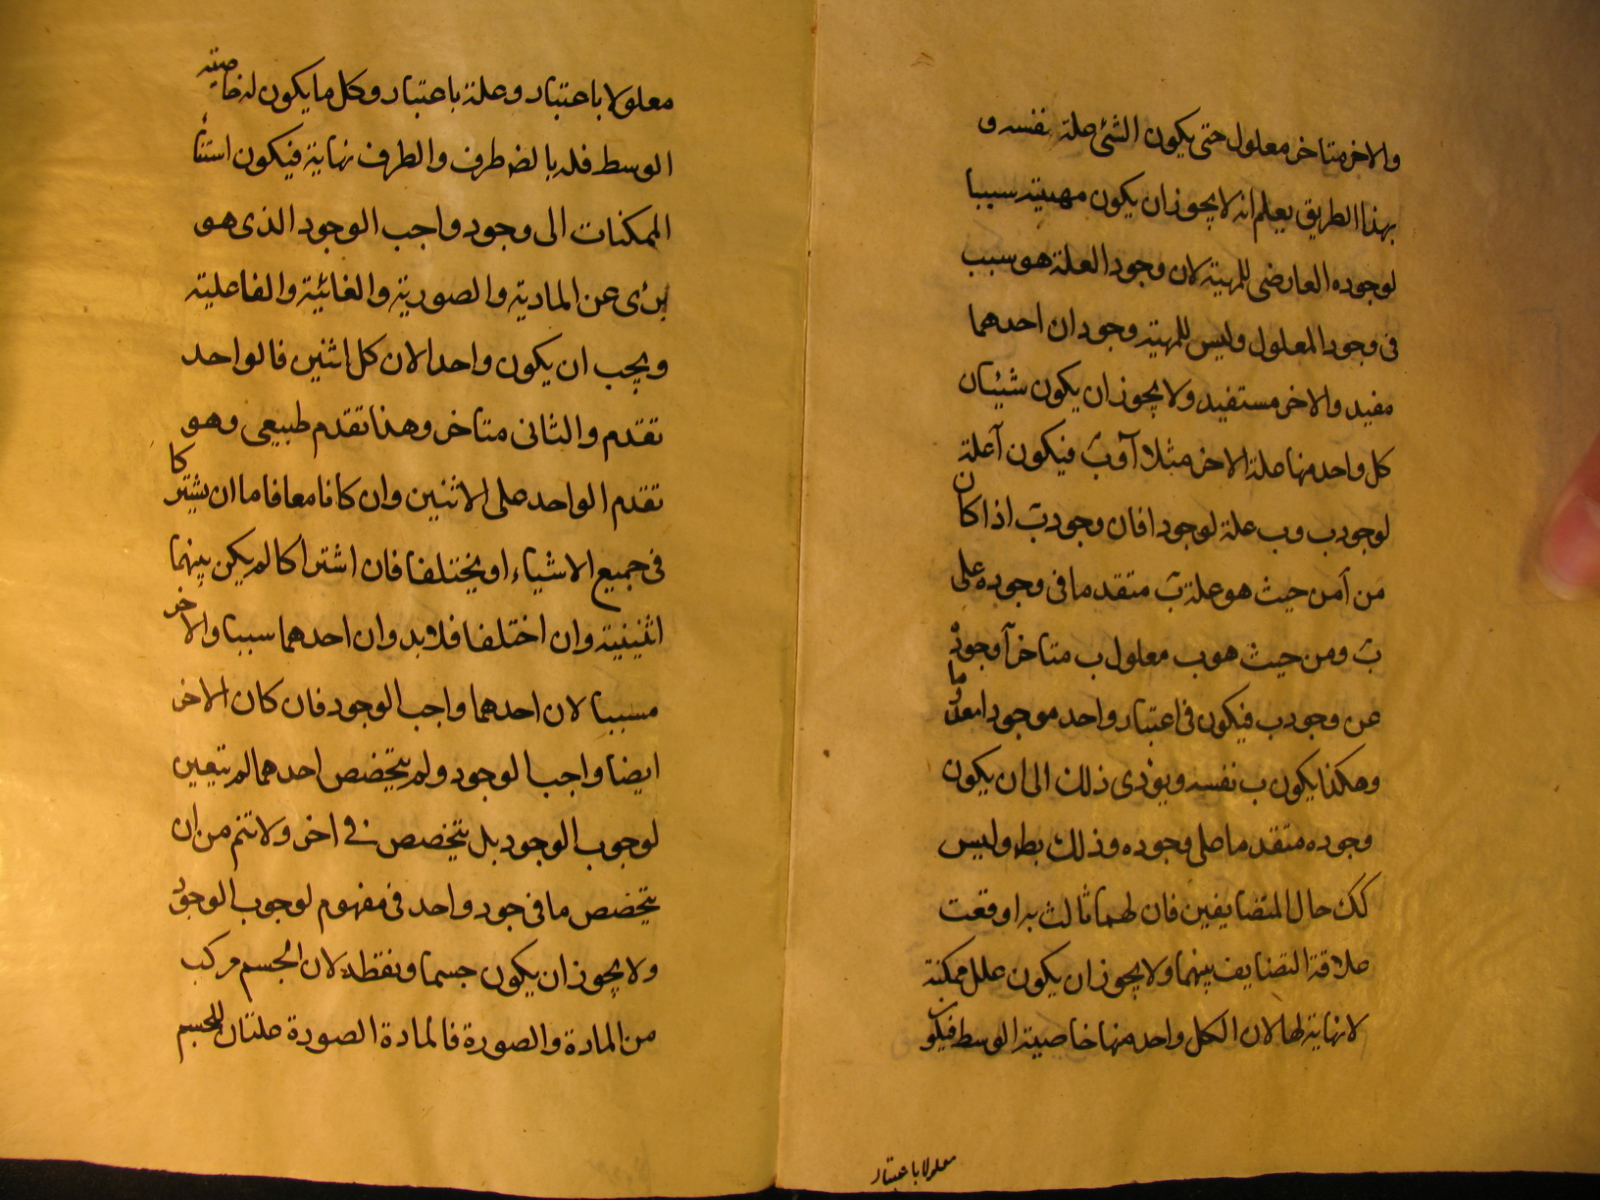 والاخر متاخر معلول حتى يكون الشئ علة نفسه و
بهذا الطريق يعلم انه لا يجوز ان يكون مهيته سببا
لوجوده العارضى للمهية لان وجود العلة هو سبب
فى وجود المعلول وليس للمهيته وجودان احدهما
مفيد والاخر مستفيد ولا يجوز ان يكون شيئان
كل واحد منها علة الاخر مثلا آ وب فيكون آ علة
لوجود ب وب علة لوجود ا فان وجود ب اذا كان
من آ من حيث هو علة ب متقدما فى وجوده على
ب ومن حيث هو ب معلول ب متاخر آ وجوده
عن وجود ب فيكون فى اعتبار واحد موجودا معدوما
وهكذا يكون ب نفسه ويؤدى ذلك الى ان يكون
وجوده متقدما على وجوده وذلك بط وليس
كك حال المتضايفين فان لهما ثالث به اوقعت
علاقة التضايف بينهما ولا يجوز ان يكون علل ممكنة
لا نهاية لها لان الكل واحد منها خاصية الوسط فيكون
معلولا باعتبار
معلولا باعتبار وعلة باعتبار وكل ما يكون له خاصيته
الوسط فله بالضـ طرف والطرف نهاية فيكون استناد
الممكنات الى وجود واجب الوجود الذى هو
برئ عن المادية والصورية والغائية والفاعلية
ويجب ان يكون واحدا لان كل اثنين فالواحد
تقدم والثانى متاخر وهذا تقدم طبيعى وهو
تقدم الواحد على الاثنين وان كانا معا فاما ان يشتركا
فى جميع الاشياء او يختلفا فان اشتراكا لم يكن بينهما
اثنينية وان اختلفا فلابد وان احدهما سببا والاخر
مسببا لان احدهما واجب الوجود فان كان الاخر
ايضا واجبا لوجود ولم يتخصص احدهما لم يتعين
لوجوب الوجود بل يتخصص فى اخر ولا تتم من ان
يتخصص ما فى جود واحد فى مفهوم لوجوب الوجود
ولا يجوز ان يكون جسما ونقطه لان الجسم مركب
من المادة والصورة فالمادة الصورة علتان للجسم